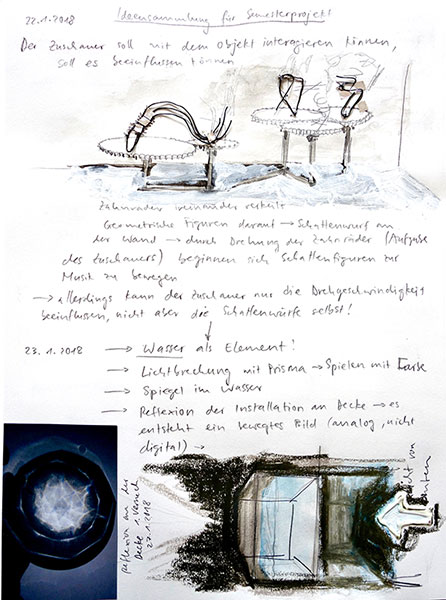 22.1.2018 Ideensammlung für Semesterprojekt
Der Zuschauer soll mit dem Objekt interagieren können,
soll es beeinflussen können
Zahnräder ineinander verkeilt
Geometrische Figuren darauf → Schattenwurf an
der Wand → durch Drehung der Zahnräder (Aufgabe
des Zuschauers) beginnen sich Schattenfiguren zur
Musik zu bewegen
→ allerdings kann der Zuschauer nur die Drehgeschwindigkeit
beeinflussen, nicht aber die Schattenwürfe selbst!
23.1.2018 → Wasser als Element!
→ Lichtbrechung mit Prisma → Spielen mit Farbe
→ Spiegel im Wasser
→ Reflexion der Installation an Decke → es
entsteht ein bewegtes Bild (analog, nicht
digital) →
Reflexion an der
Decke 1. Versuch
27.1.2018
Licht von
unten